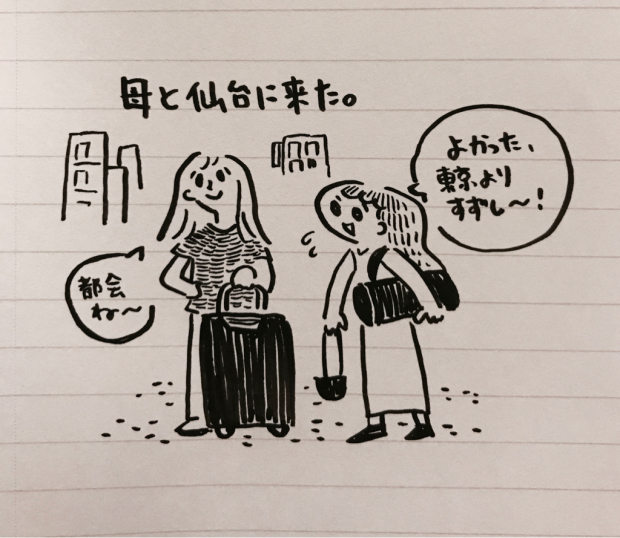 母と仙台に来た。
よかった、
東京より
すずし〜!
都会
ね〜